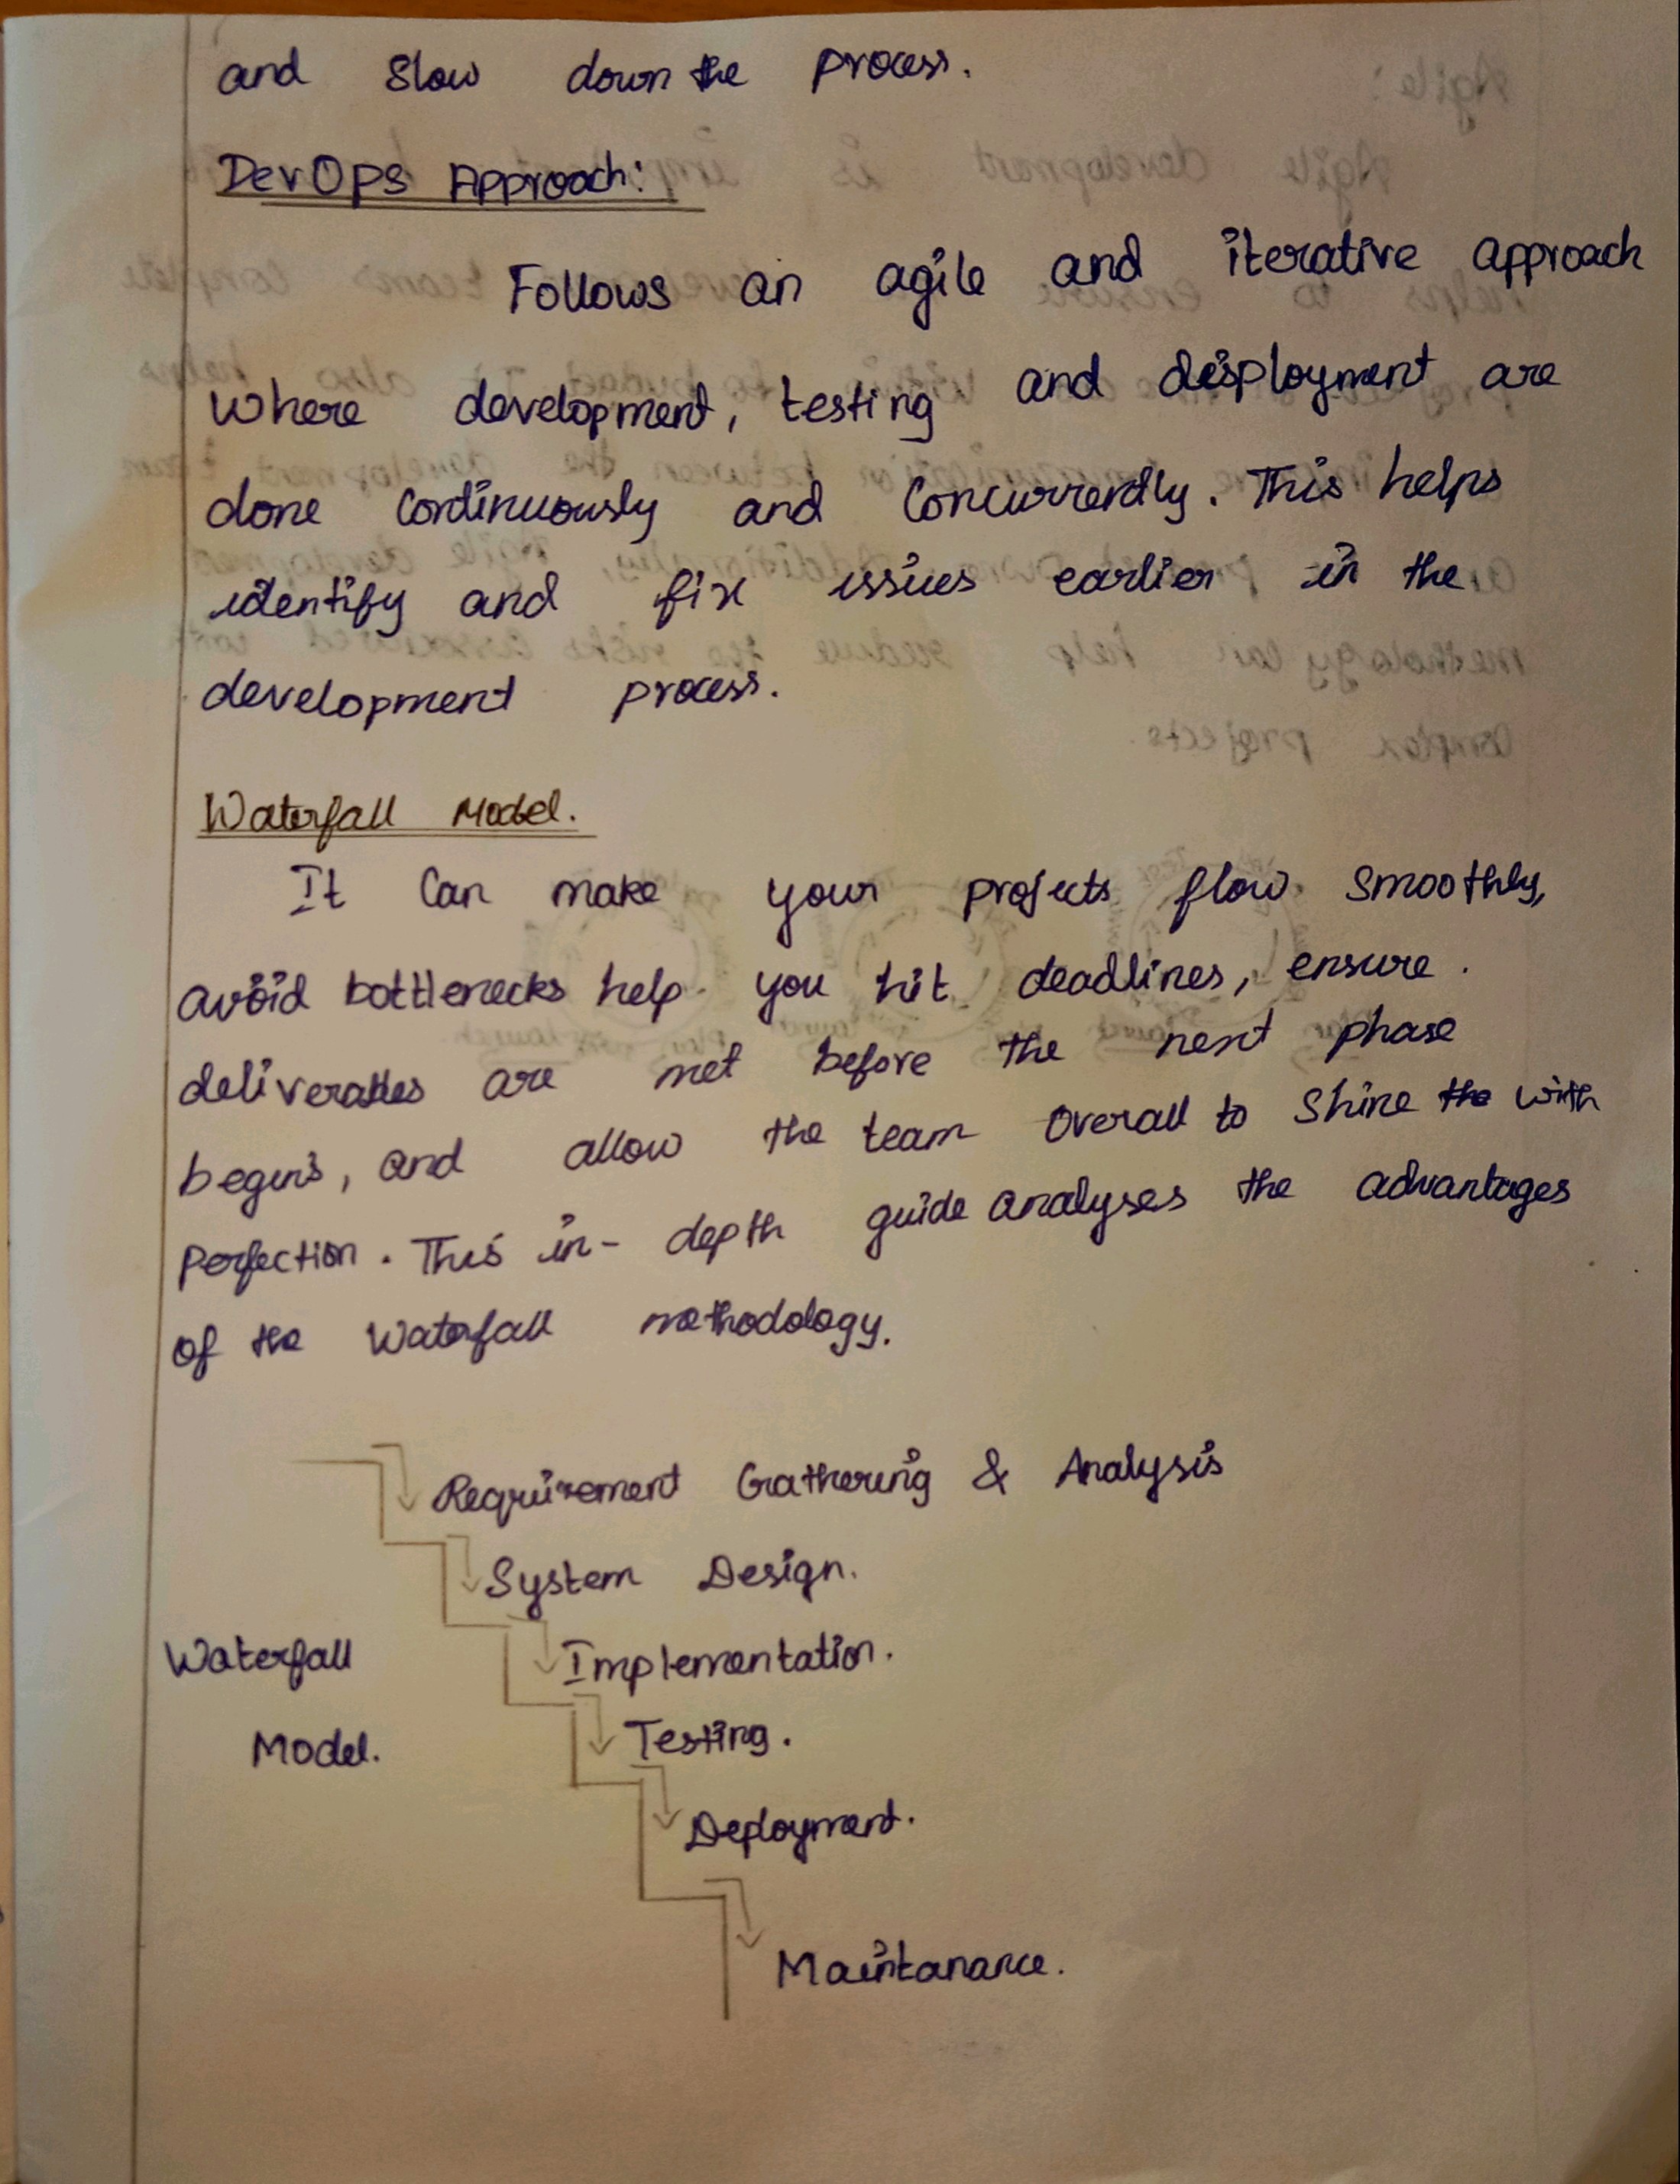 and slow down the process.
DevOps Approach:
Follows an agile and iterative approach
where development, testing and desployment are
done continuously and concurrently. This helps
identify and fix issues earlier in the
development process.
Waterfall Model.
It can make your projects flow smoothly,
avoid bottlenecks help you hit deadlines, ensure.
deliverables are met before the next phase
begins, and allow the team overall to shine the with
perfection. This in-depth guide analyses the advantages
of the Waterfall methodology.
Requirement Gathering & Analysis
System Design.
Waterfall Implementation.
Model. Testing.
Deployment.
Maintanance.